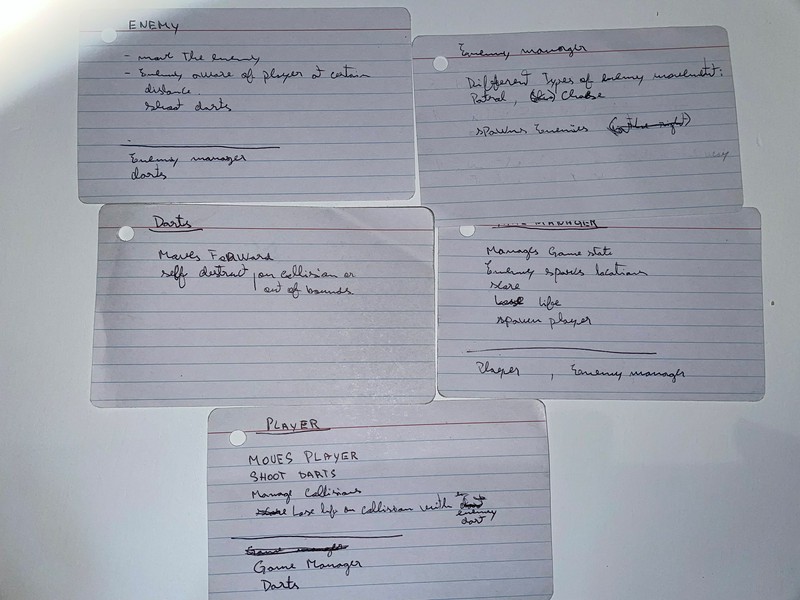 ENEMY
- move the enemy
- Enemy aware of player at certain
distance.
Shoot darts
-
Enemy manager
darts
Enemy manager
Different Types of enemy movement:
Patrol, Chase
spawns Enemies (to the right)
Darts
Moves Forward
self destruct on collision or
out of bounds.
MANAGER
Manages Game state
Enemy locations
score
life
spawn player
Player, Enemy manager
PLAYER
MOVES PLAYER
SHOOT DARTS
Manage Collisions
Lose life on collision with
enemy
dart
Game manager
Game Manager
Darts